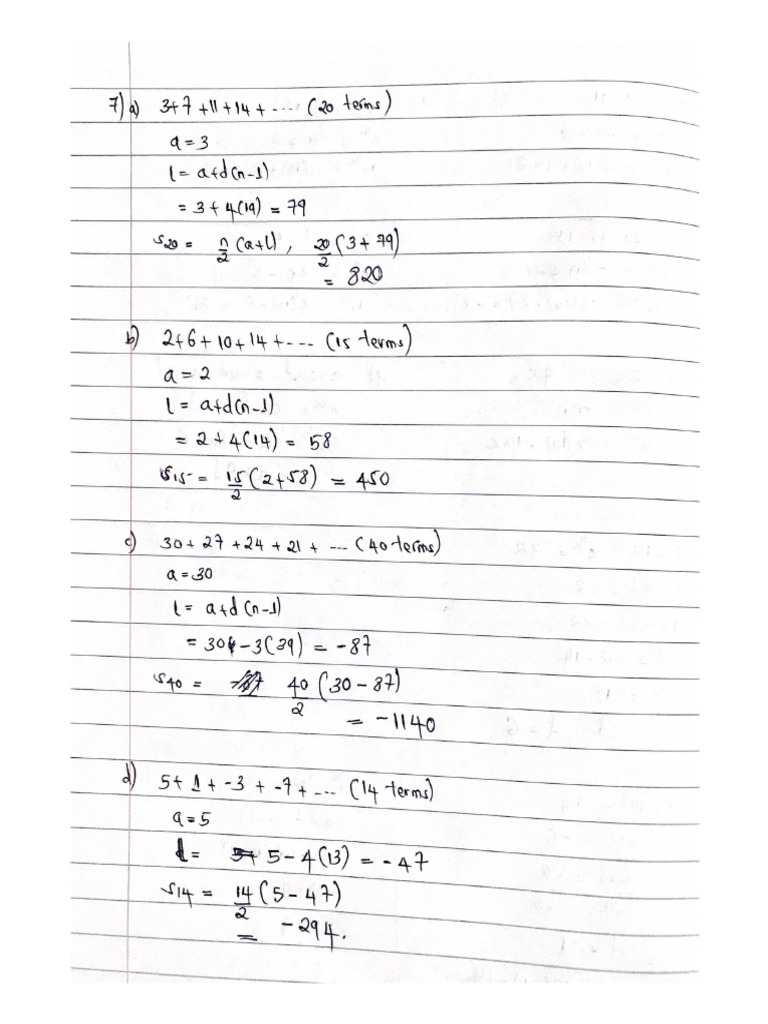 7) a) 3+7+11+14+ .... (20 terms)
a = 3
l = a+d(n-1)
= 3 + 4(19) = 79
S20 = n/2 (a+l) , 20/2 (3 + 79)
= 820
b) 2+6+10+14+ .... (15 terms)
a = 2
l = a+d(n-1)
= 2 + 4(14) = 58
S15 = 15/2 (2+58) = 450
c) 30+27+24+21+ .... (40 terms)
a = 30
l = a+d(n-1)
= 30 - 3(39) = -87
S40 = 40/2 (30 - 87)
= -1140
d) 5+ 1 + -3 + -7 + .... (14 terms)
a = 5
l = 5 - 4(13) = -47
S14 = 14/2 (5 - 47)
= -294.